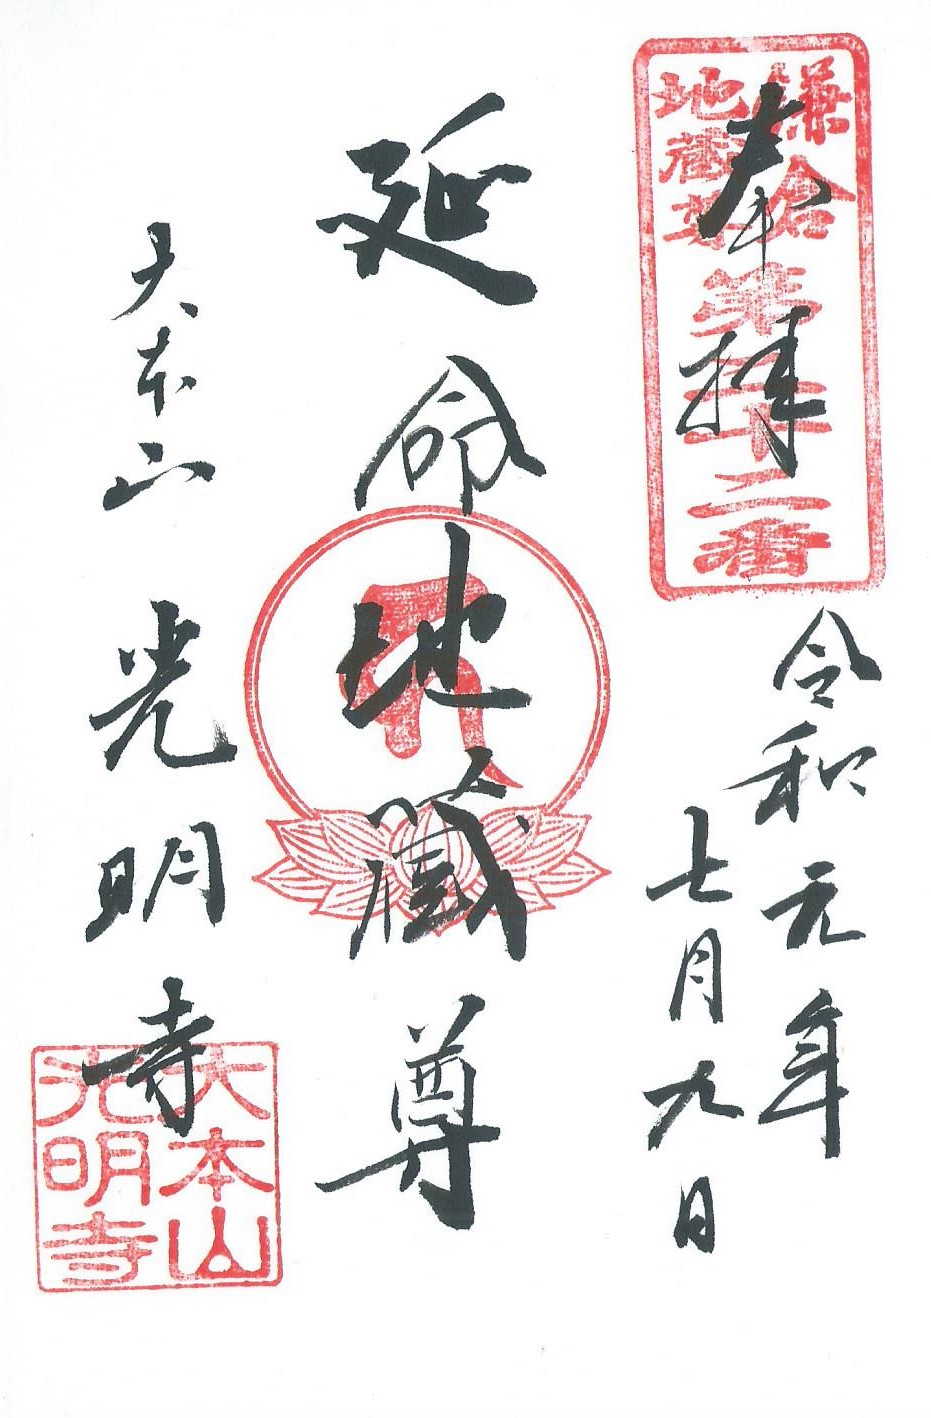 奉拝
鎌倉
地蔵尊
第二十二番
令和元年
七月九日
延命地蔵尊
大本山 光明寺
大本山
光明寺